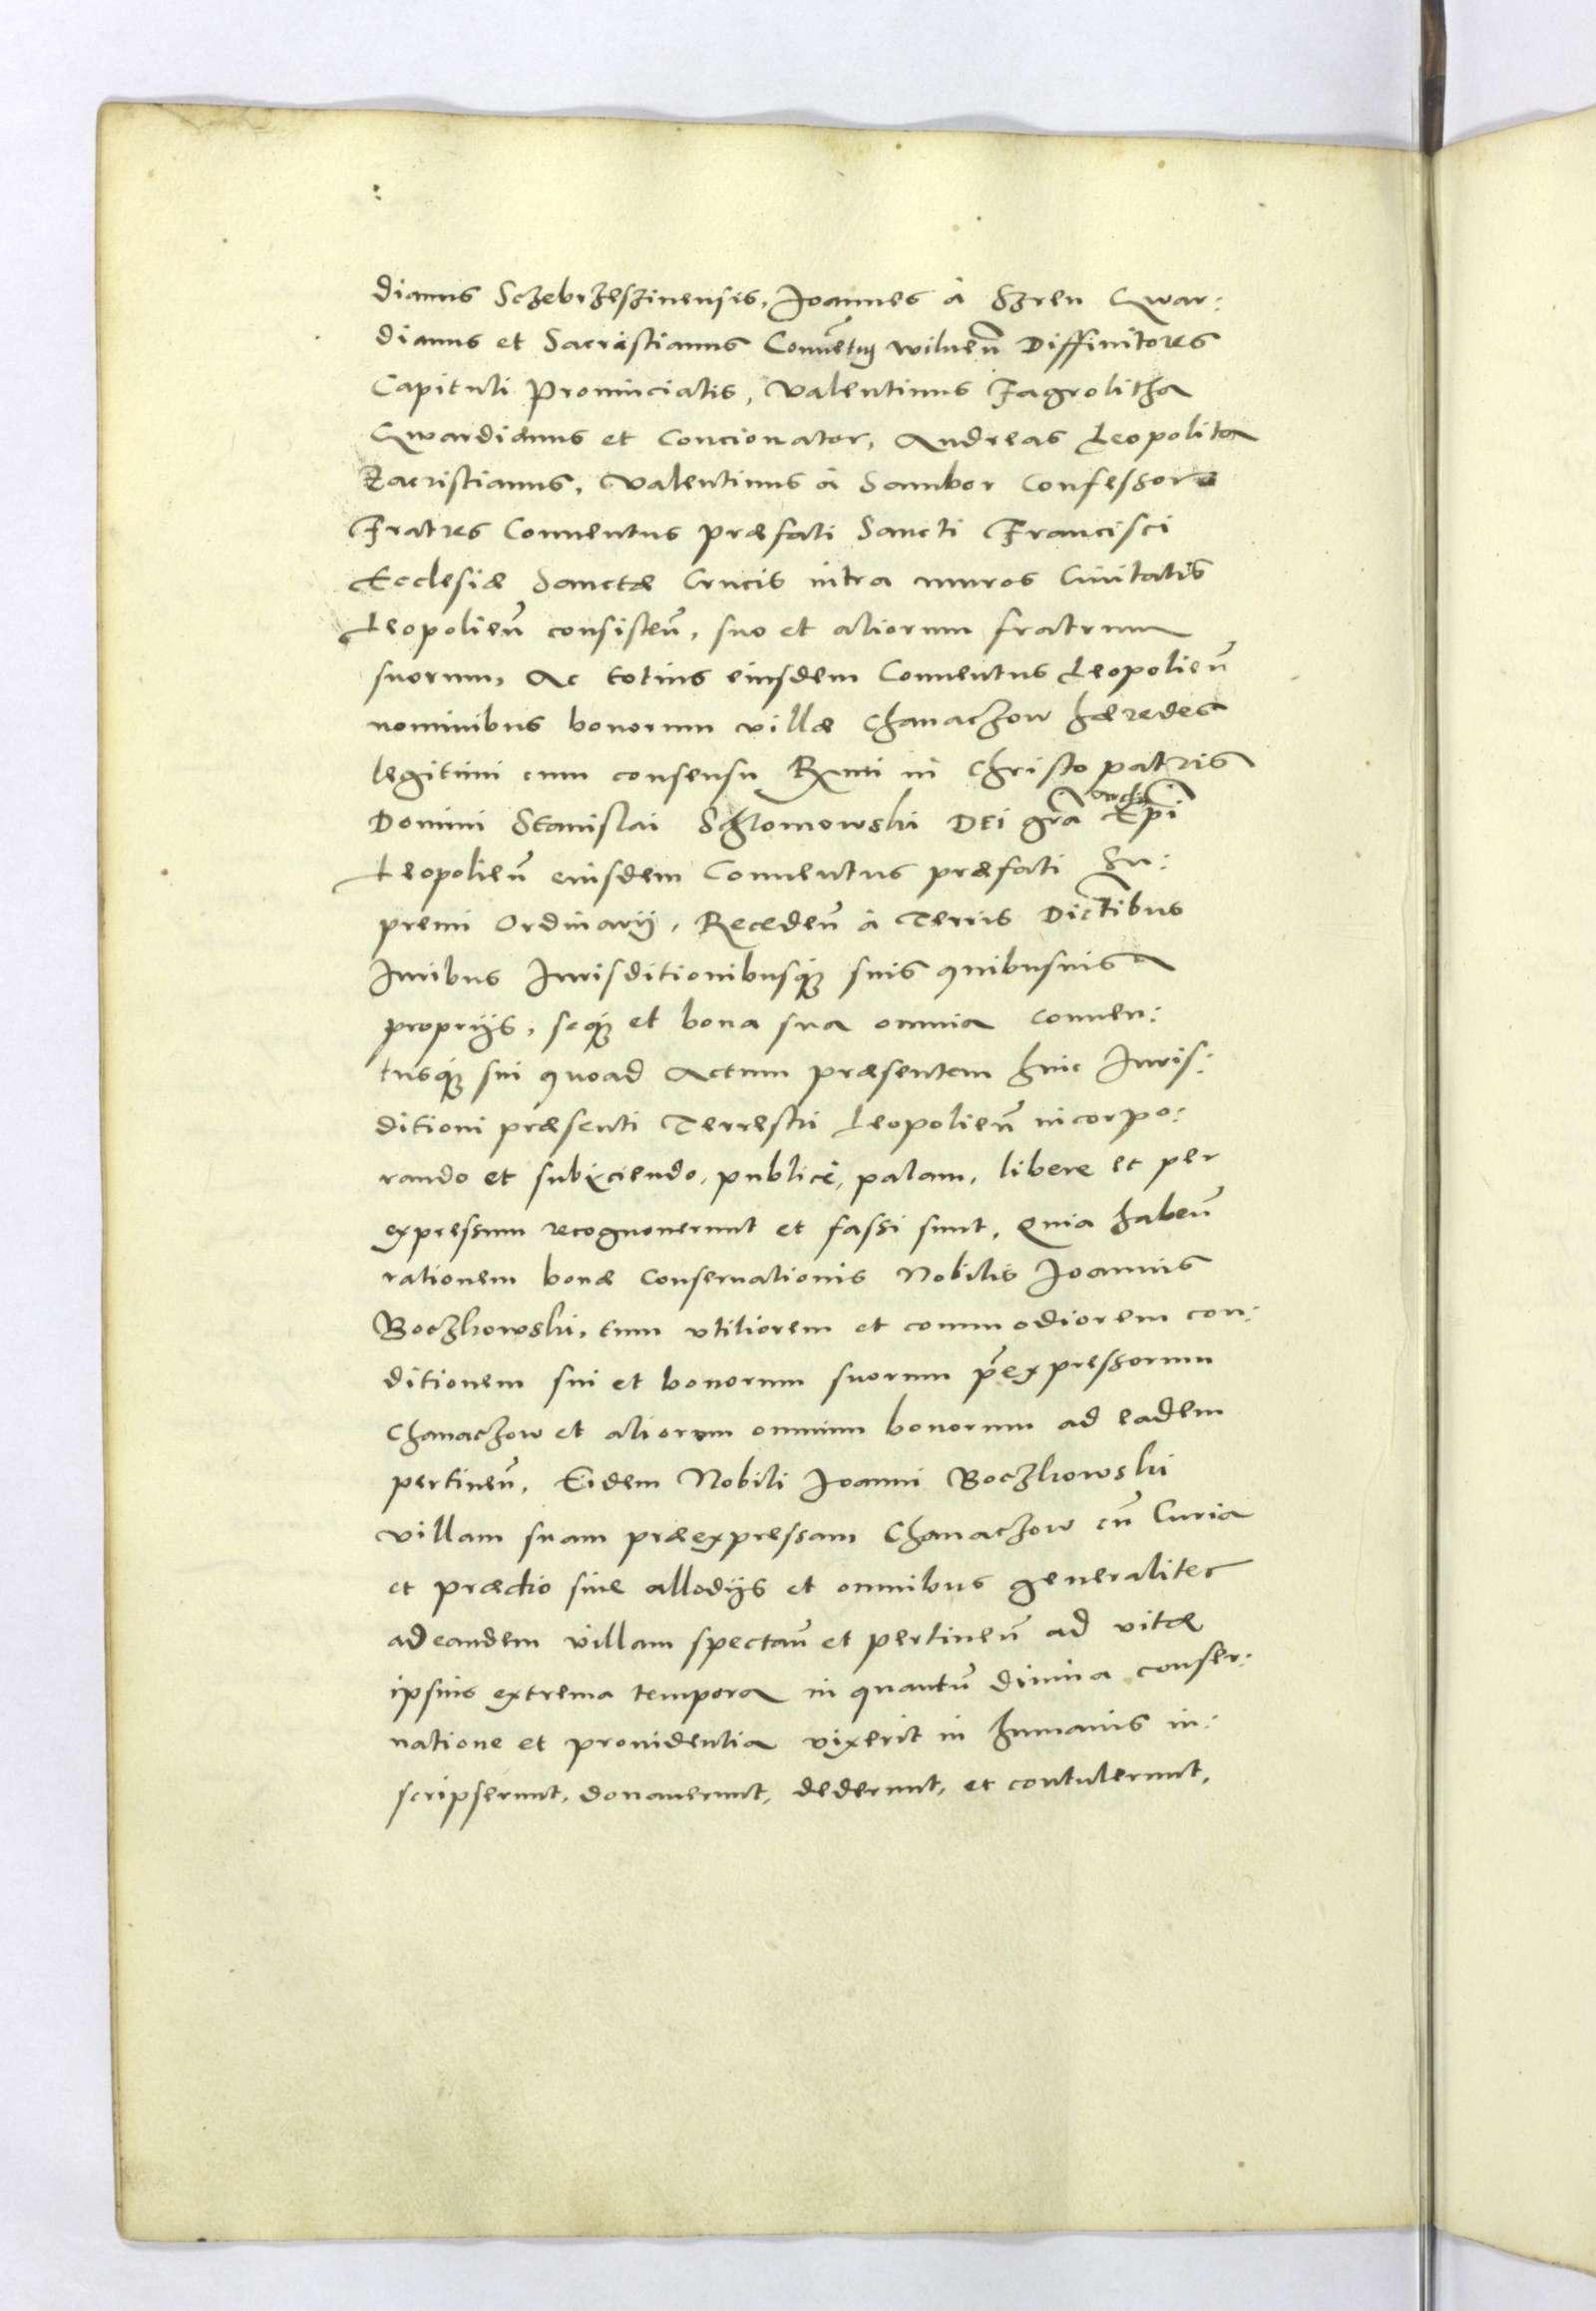 dianus Sczebrzeszinensis, Joannes à Szren Gwar:
dianus et Sacristianus Conuētus wilneñ Diffinitores
Capituli Prouincialis, Valentinus Jagrolitha
Gwardianus et Concionator, Andreas Leopolita
Sacristianus, Valentinus à Sambor Confessor
Fratres Conuentus præfati Sancti Francisci
Ecclesiæ Sanctæ Crucis intra muros Ciuitatis
Leopolieñ consisteñ, suo et aliorum fratrum
suorum, Ac totius eiusdem Conuentus Leopolieñ
nominibus bonorum villæ Chanaczow hæredes
legitimi cum consensu Rxmi in Christo patris
Domini Stanislai Schlomowski Dei grã Archi Epĩ
Leopolieñ eiusdem Conuentus præfati Su:
premi Ordinarij, Recedeñ à Terris Dictibus
Iuribus Iurisditionibusq3 suis quibusuis
proprijs, seq3 et bona sua omnia conuen:
tusq3 sui quoad Actum præsentem huic Iuris:
ditioni præsenti Terrestri Leopolieñ incorpo:
rando et subijciendo, publicè, palam, libere et per
expressum recognouerunt et fassi sunt, Quia habeñ
rationem bonæ conseruationis Nobilis Joannis
Boczkowski, tum vtiliorem et commodiorem con:
ditionem sui et bonorum suorum p̃expressorum
Chanaczow et aliorum omnium bonorum ad eadem
pertineñ, Eidem Nobili Joanni Boczkowski
villam suam præexpressam Chanaczow cũ Curia
et prædio siue allodijs et omnibus generaliter
ad eandem villam spectañ et pertineñ ad vitæ
ipsius extrema tempora in quantũ diuina conser:
uatione et prouidentia vixerit in humanis in:
scripserunt, donauerunt, dederunt, et contulerunt,